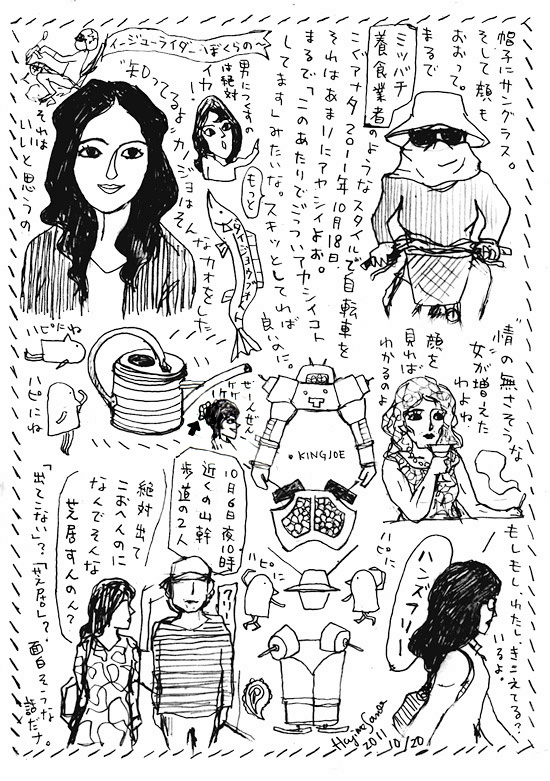 帽子にサングラス。
そして顔も
おおって。
まるで
ミツバチ
養食業者のようなスタイルで自転車を
こぐアナタ 2011年10月18日
それはあまりにアヤシイよお。
まるで「このあたりでごっついアヤシイコト
してます」みたいな。スキッとしてれば
良いのに。
イージューライダー ぼくらの〜
男につくすの
は絶対
イカ!
もっと
"知ってるよ"カノジョはそんなカオをした
それは
いいと思うの
ハピにね
ハピにね
ぜーんぜん
ゲゲ
KINGJOE
"情"の無さそうな
女が増えた
わよね
顔を
見れば
わかるのよ
10月6日夜10時
近くの山幹
歩道の2人
絶対出て
こおへんのに
なんでそんな
芝居すんのん?
「出てこない」?「芝居」?
面白そうな
話だナ。
ハピに
ハピに
もしもし、わたし、きこえてる?
いるよ。
ハンズフリー
2011 10/20